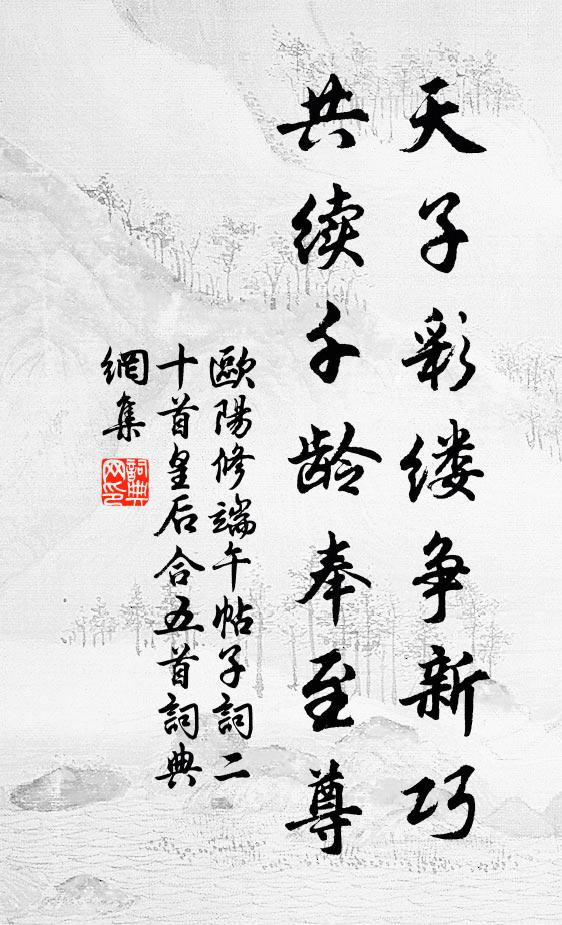 天子彩缕争新巧
共续千龄奉至尊
歐陽修端午帖子詞二
十首皇后合五首詞典
網集
詞典網印